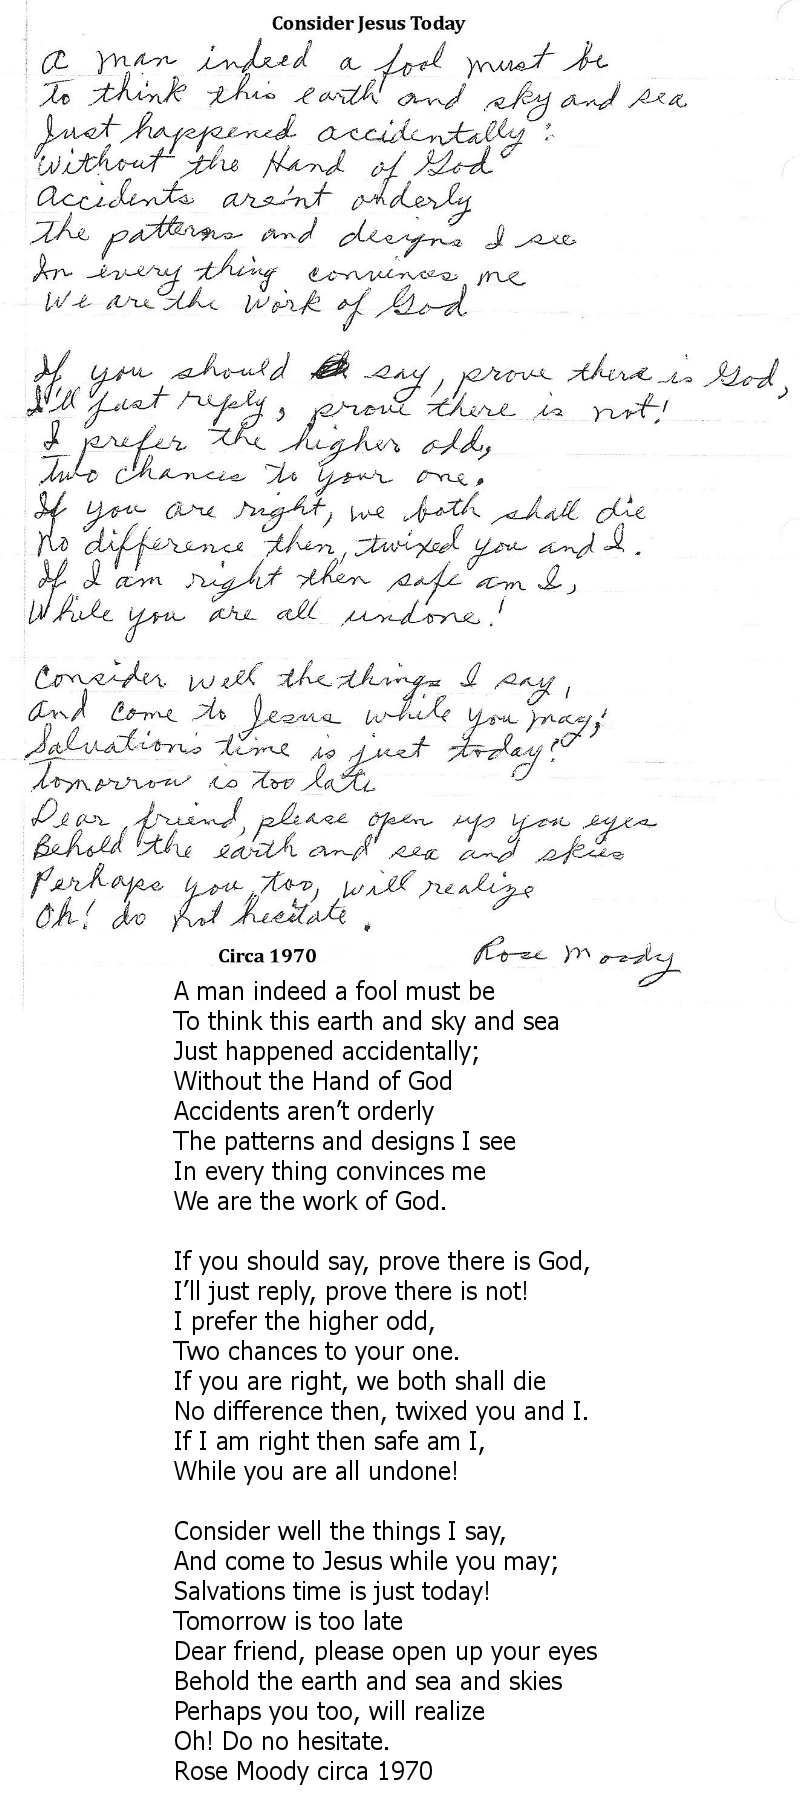 Consider Jesus Today
A man indeed a fool must be
To think this earth and sky and sea
Just happened accidentally;
Without the Hand of God
Accidents are'nt orderly
The patterns and designs I see
In every thing convinces me
We are the work of God
If you should say, prove there is God,
I'll just reply, prove there is not!
I prefer the higher odd,
Two chances to your one.
If you are right, we both shall die
No difference then, twixed you and I.
If I am right then safe am I,
While you are all undone!
Consider well the things I say,
And come to Jesus while you may;
Salvation's time is just today!
Tomorrow is too late
Dear friend, please open up you eyes
Behold the earth and sea and skies
Perhaps you, too, will realize
Oh! do not hesitate.
Circa 1970 Rose Moody
A man indeed a fool must be
To think this earth and sky and sea
Just happened accidentally;
Without the Hand of God
Accidents aren’t orderly
The patterns and designs I see
In every thing convinces me
We are the work of God.
If you should say, prove there is God,
I’ll just reply, prove there is not!
I prefer the higher odd,
Two chances to your one.
If you are right, we both shall die
No difference then, twixed you and I.
If I am right then safe am I,
While you are all undone!
Consider well the things I say,
And come to Jesus while you may;
Salvations time is just today!
Tomorrow is too late
Dear friend, please open up your eyes
Behold the earth and sea and skies
Perhaps you too, will realize
Oh! Do no hesitate.
Rose Moody circa 1970